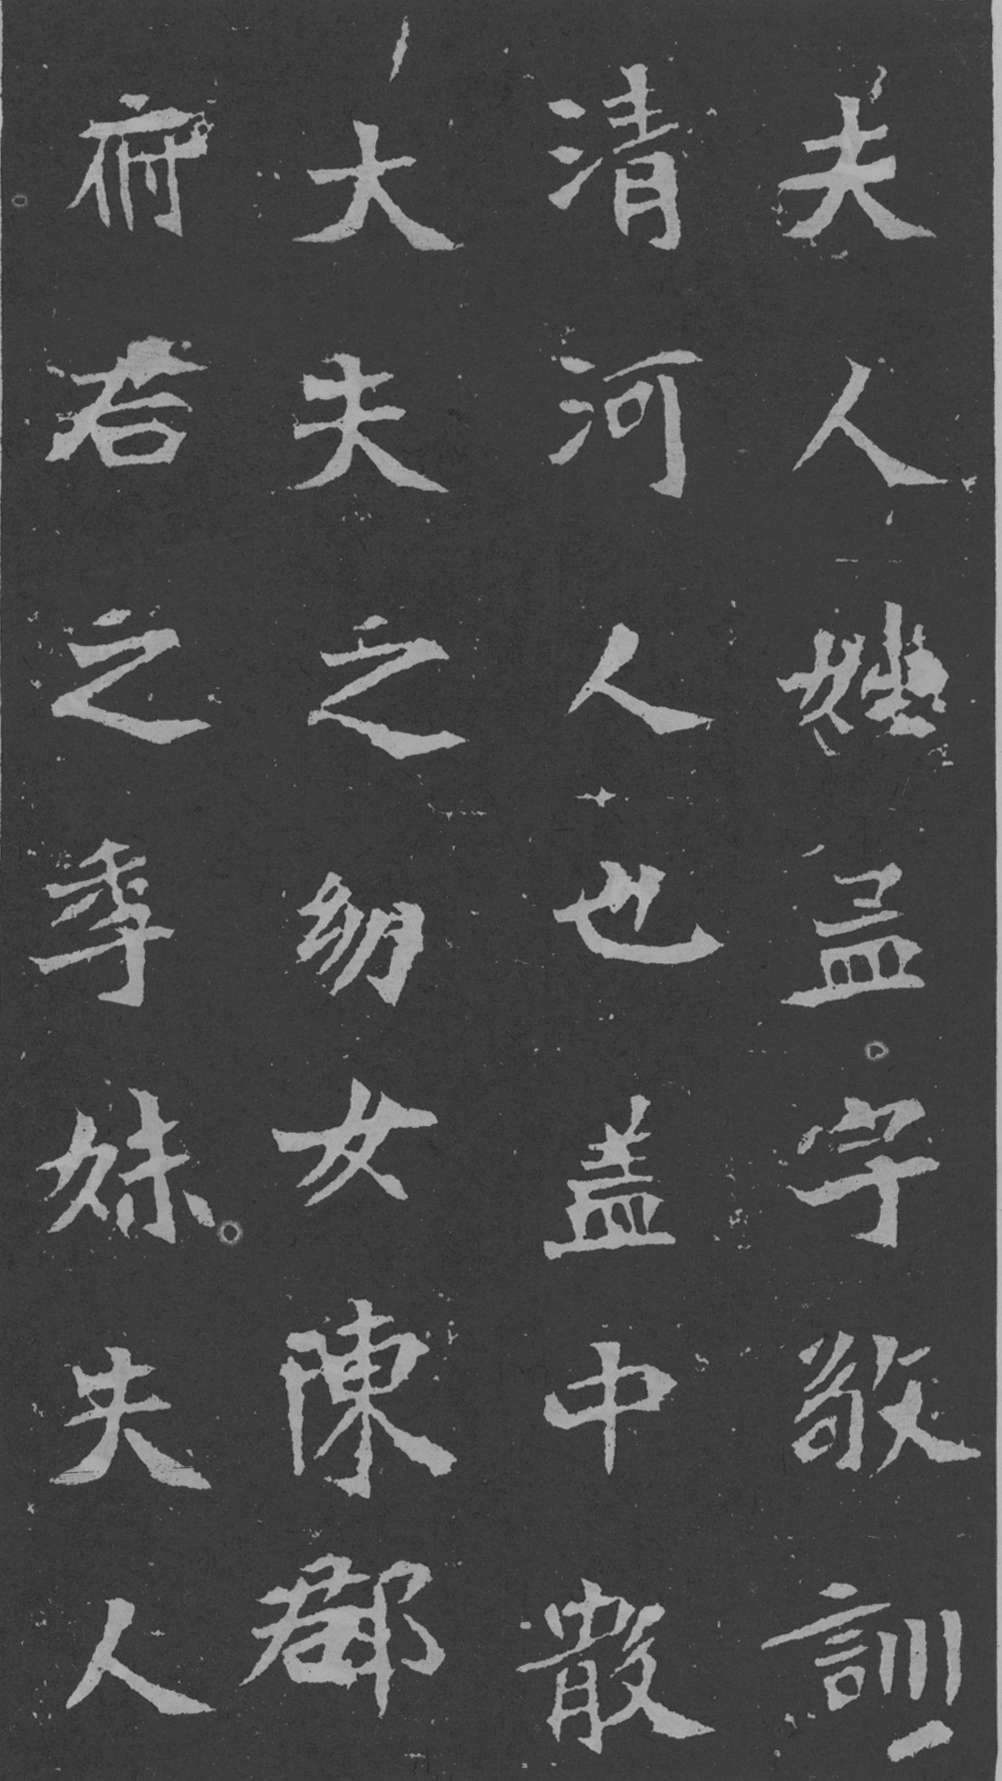 夫人姓孟字敬訓
清河人也盖中散
大夫之幼女陳郡
府君之季妹夫人